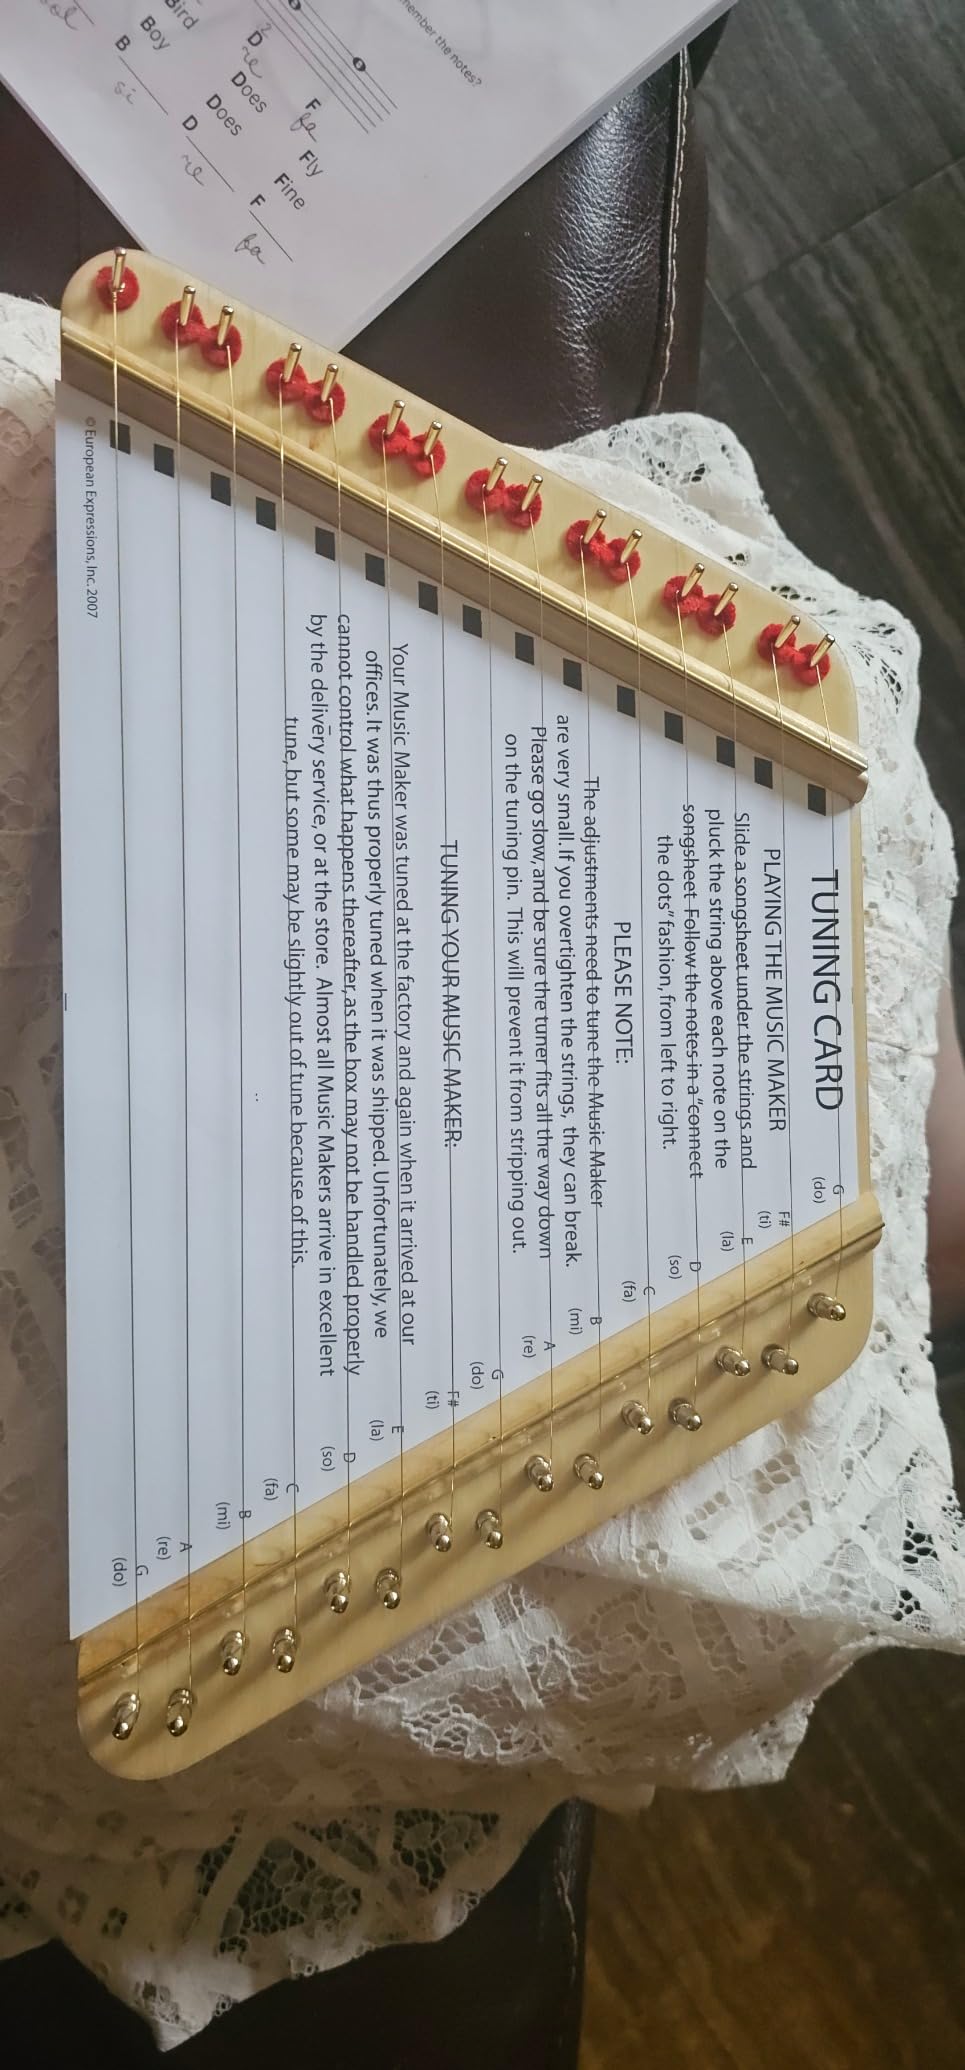 TUNING CARD
PLAYING THE MUSIC MAKER
Slide a songsheet under the strings and
pluck the string above each note on the
songsheet Follow the notes in a "connect
the dots" fashion, from left to right.
PLEASE NOTE:
The adjustments need to tune the Music Maker
are very small. If you overtighten the strings, they can break.
Please go slow, and be sure the tuner fits all the way down
on the tuning pin. This will prevent it from stripping out.
TUNING YOUR MUSIC MAKER:
Your Music Maker was tuned at the factory and again when it arrived at our
offices. It was thus properly tuned when it was shipped. Unfortunately, we
cannot control what happens thereafter, as the box may not be handled properly
by the delivery service, or at the store. Almost all Music Makers arrive in excellent
tune, but some may be slightly out of tune because of this.
G
(do)
F#
(ti)
E
(la)
D
(so)
C
(fa)
B
(mi)
A
(re)
G
(do)
F#
(ti)
E
(la)
D
(so)
C
(fa)
B
(mi)
A
(re)
G
(do)
© European Expressions, Inc. 2007
member the notes?
D F
re fa
Bird Does Fly
Boy Does Fine
B D F
si re fa